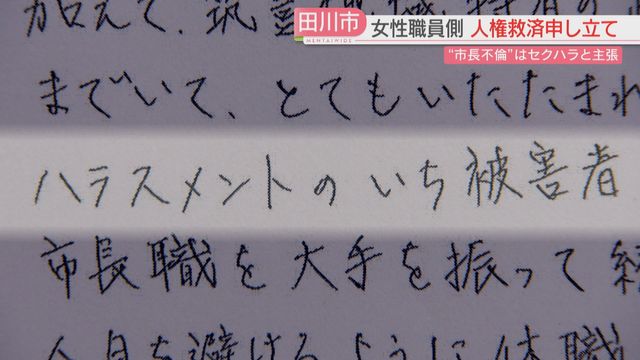 田川市
MENTAIWIDE
女性職員側 人権救済申し立て
“市長不倫”はセクハラと主張
加えて、筑豊
までいて、とてもいたたまれ
ハラスメントのいち被害者
市長職を大手を振って
人目を避けるように休職